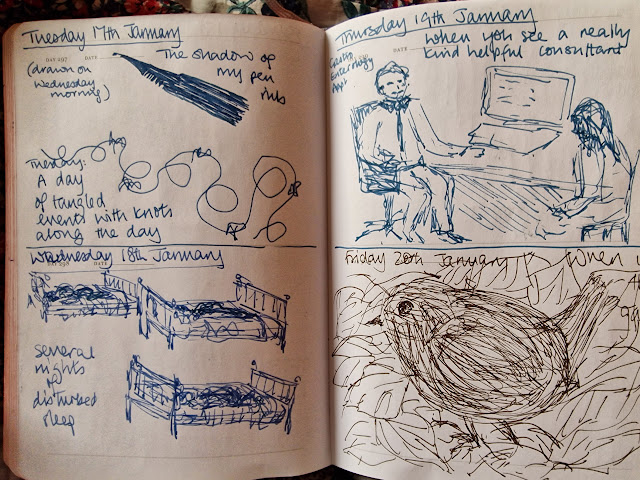 Tuesday 17th January
DAY 257 DATE
(drawn on
Wednesday
morning)
The shadow of
my pen
nib
Tuesday:
A day
of tangled
events with knots
along the day
Wednesday 18th January
DATE
several
nights
of
disturbed
sleep
Thursday 19th January
DATE
When you see a really
kind helpful consultant
Friday 20th January
When